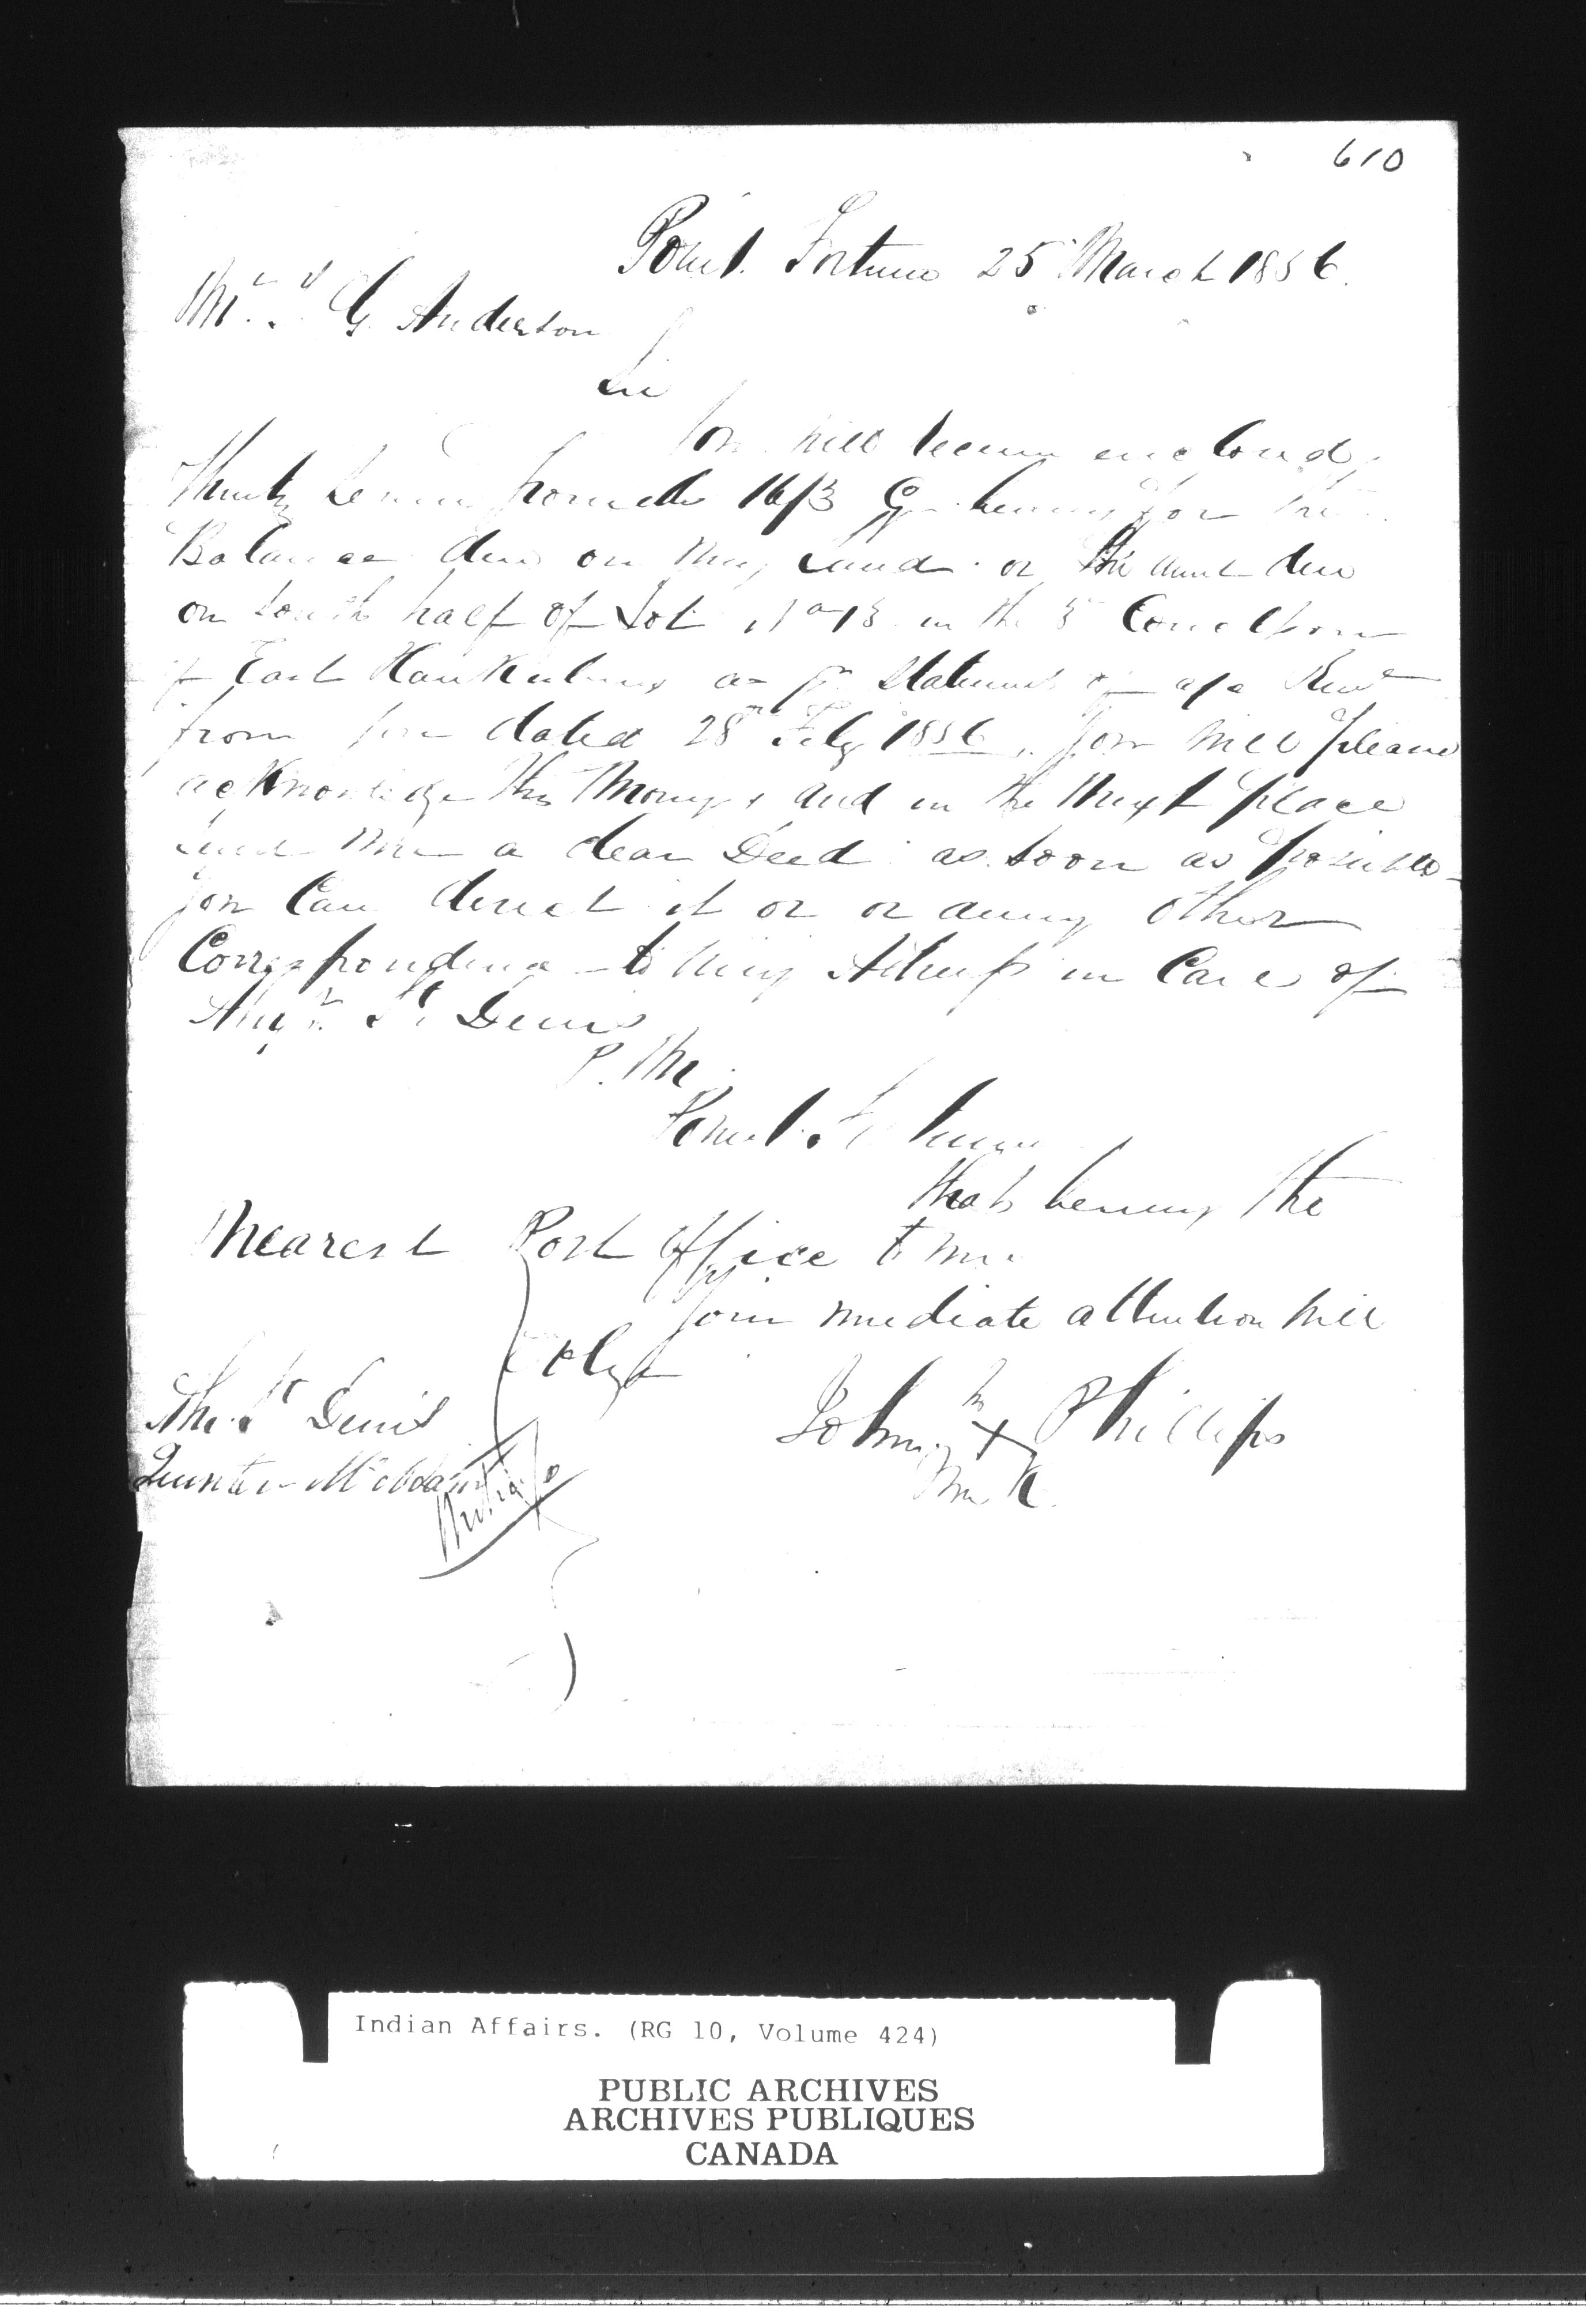 610
Point Fortune 25 March 1856.
Mr. G. Anderson
Sir
You will enclosed
Thirty seven pounds 16/3 Cy being for the
Balance due on my Land or the amt due
on South half of Lot No 13 in the 5 Concession
of East Hawkesbury as pr Statement of a/c
from you dated 28th Feby 1856. You will please
acknowledge this Money, and in the Next place
send me a clear Deed as soon as possible
You Can direct it or or anny other
Correspondence to my in Care of
St Denis
P.M.
Point Fortune
that being the
Nearest Post Office to me
Your mediate attention will
oblige
St Denis
John X Phillips
Indian Affairs. (RG 10, Volume 424)
PUBLIC ARCHIVES
ARCHIVES PUBLIQUES
CANADA